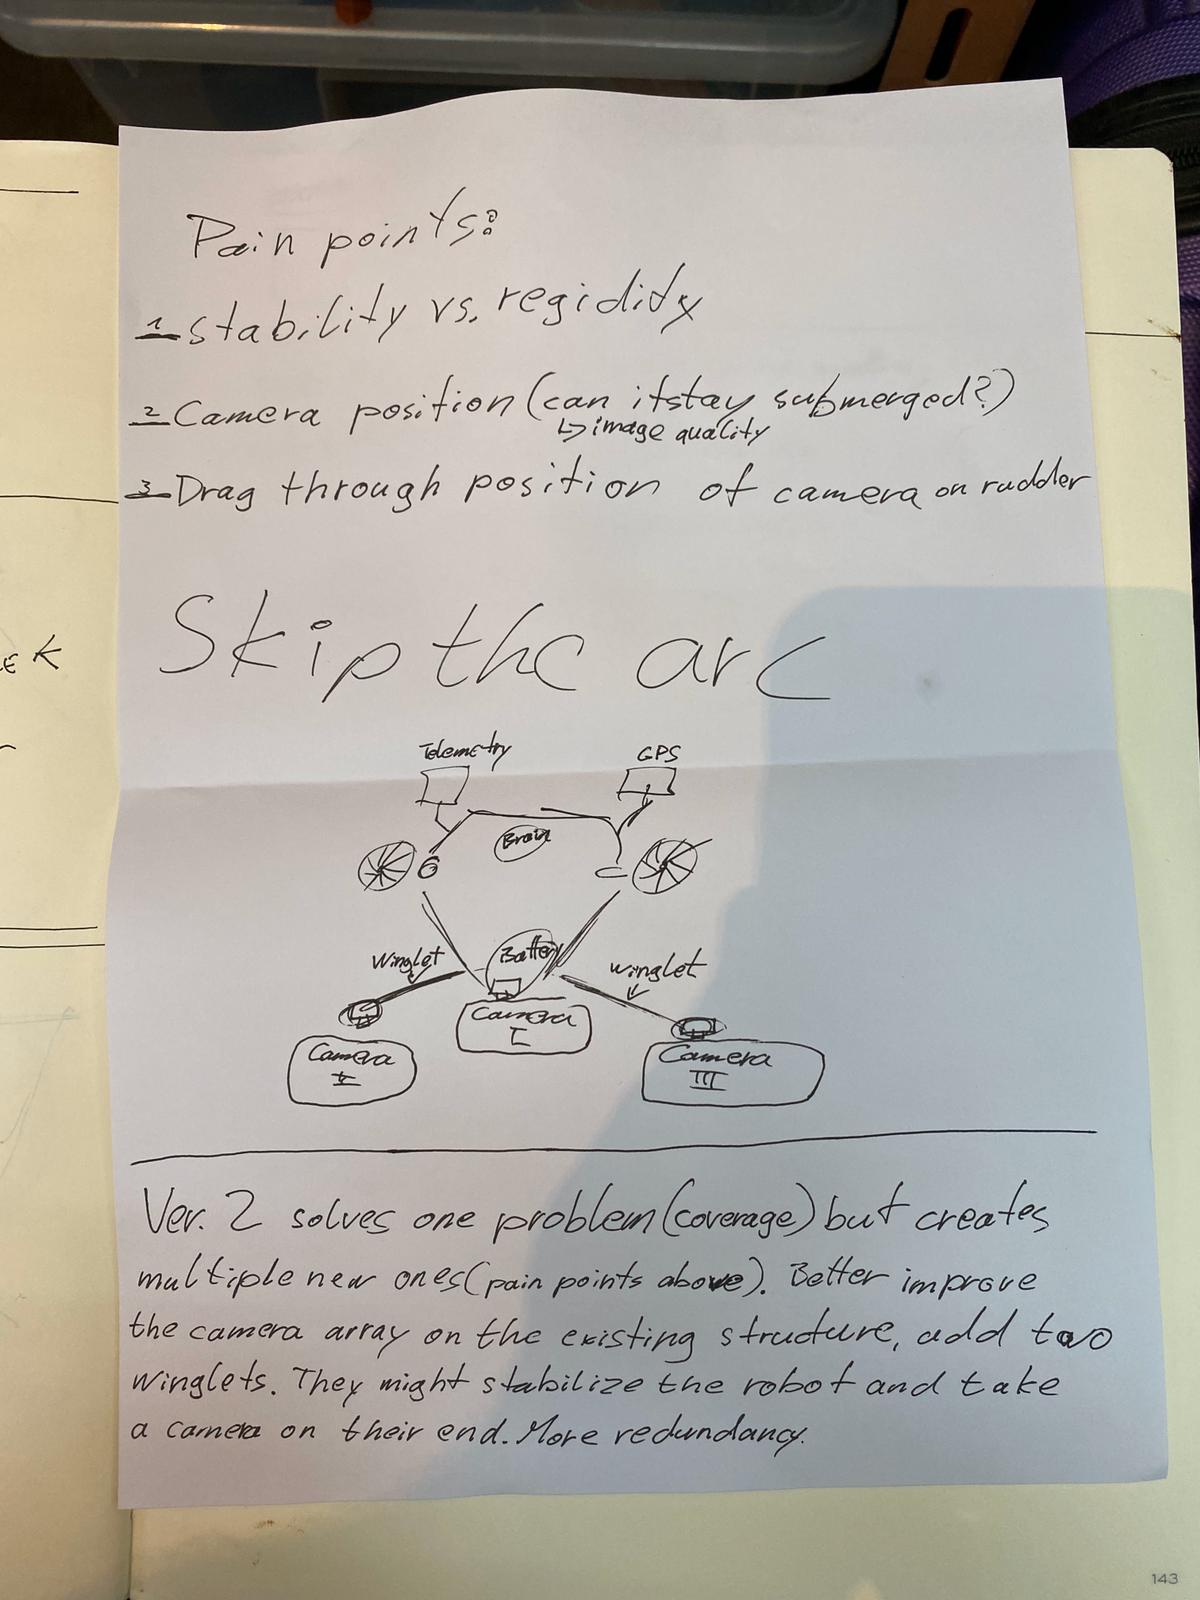 Pain points:
1 stability vs. regidity
2 Camera position (can itstay submerged?)
↳ image quality
3 Drag through position of camera on rudder
Skip the arc
Telemetry
GPS
Brain
Battery
Winglet
winglet
Camera
I
Camera
Camera
III
Ver. 2 solves one problem (coverage) but creates
multiple new ones (pain points above). Better improve
the camera array on the existing structure, add two
winglets. They might stabilize the robot and take
a camera on their end. More redundancy.
143